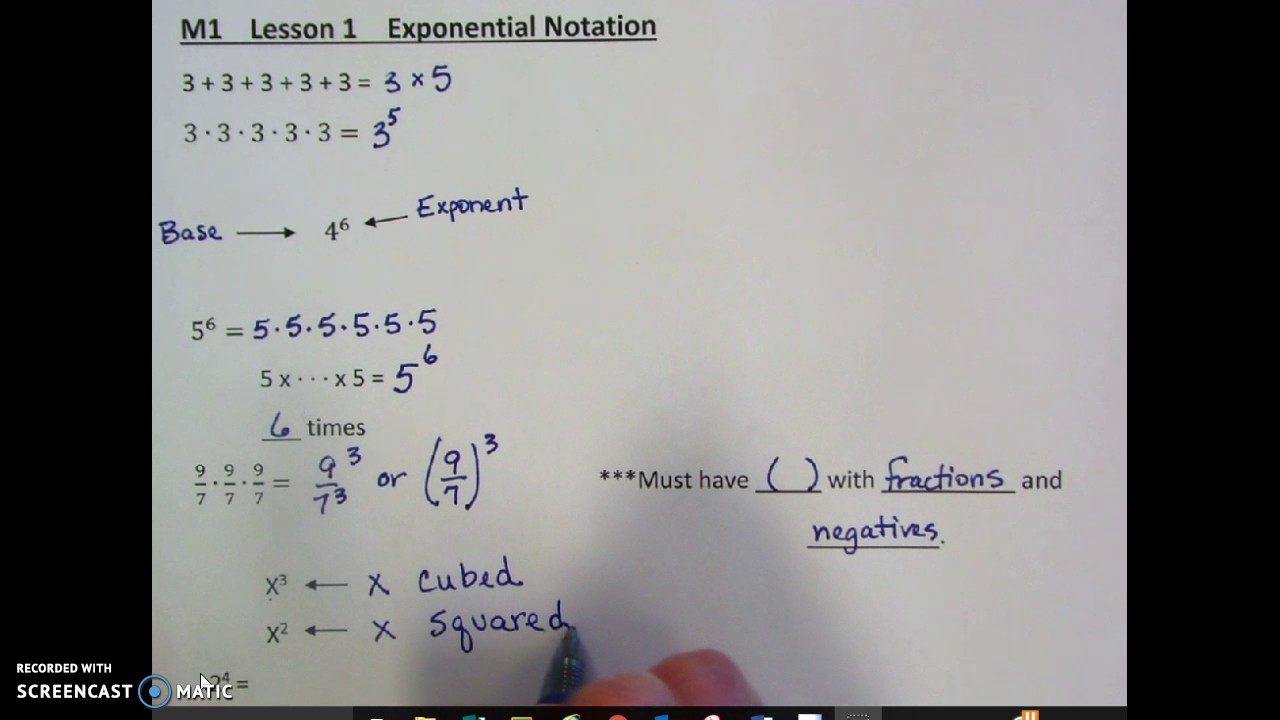 M1 Lesson 1 Exponential Notation
3 + 3 + 3 + 3 + 3 = 3 × 5
3 · 3 · 3 · 3 · 3 = 3⁵
Base → 4⁶ ← Exponent
5⁶ = 5·5·5·5·5·5
5 x · · · x 5 = 5⁶
6 times
9/7 · 9/7 · 9/7 = 9³/7³ or (9/7)³
***Must have ( ) with fractions and
negatives.
X³ ← X cubed
X² ← X squared
RECORDED WITH
SCREENCAST MATIC